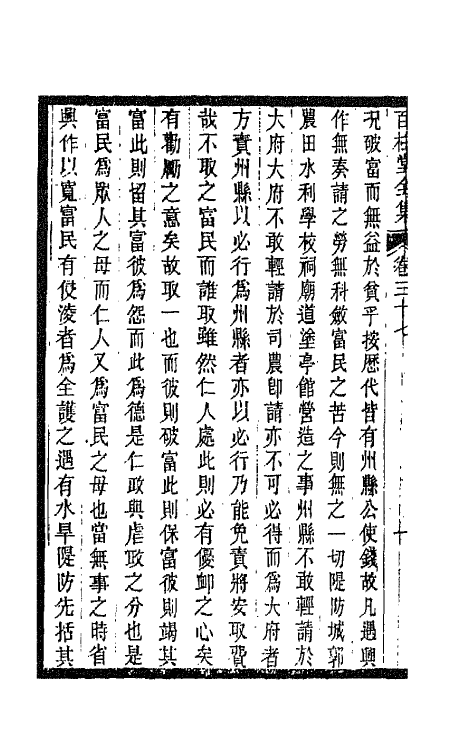 百柱堂全集 卷三十七
况破富而無益於貧乎按歷代皆有州縣公使錢故凡遇興
作無奏請之勞無科斂富民之苦今則無之一切隄防城郭
農田水利學校祠廟道塗亭館營造之事州縣不敢輕請於
大府大府不敢輕請於司農卽請亦不可必得而爲大府者
方責州縣以必行爲州縣者亦以必行乃能免責將安取費
哉不取之富民而誰取雖然仁人處此則必有優卹之心矣
有勸勵之意矣故取一也而彼則破富此則保富彼則竭其
富此則留其富彼爲怨而此爲德是仁政與虐取之分也是
富民爲眾人之母而仁人又爲富民之母也當無事之時省
興作以寬富民有侵淩者爲全護之遇有水旱隄防先括其